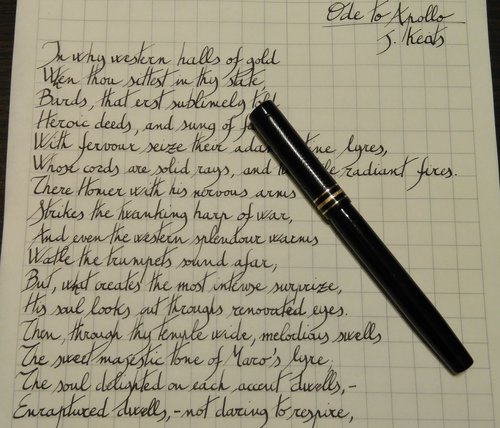 Ode to Apollo
J. Keats
In why western halls of gold
When thou sittest in thy state
Bards, that erst sublimely
Heroic deeds, and sung of
With fervour seize their lyres,
Whose cords are solid rays, and radiant fires.
There Homer with his nervous arms
Strikes the twanking harp of war,
And even the western splendour warms
Watle the trumpets sound afar;
But, what creates the most intense surprize,
His soul looks out throughs renovated eyes.
Then, through thy temple wide, melodious swells
The sweet majestic tone of Maro's lyre:
The soul delighted on each accent dwells,-
Enraptured dwells,-not daring to respire,